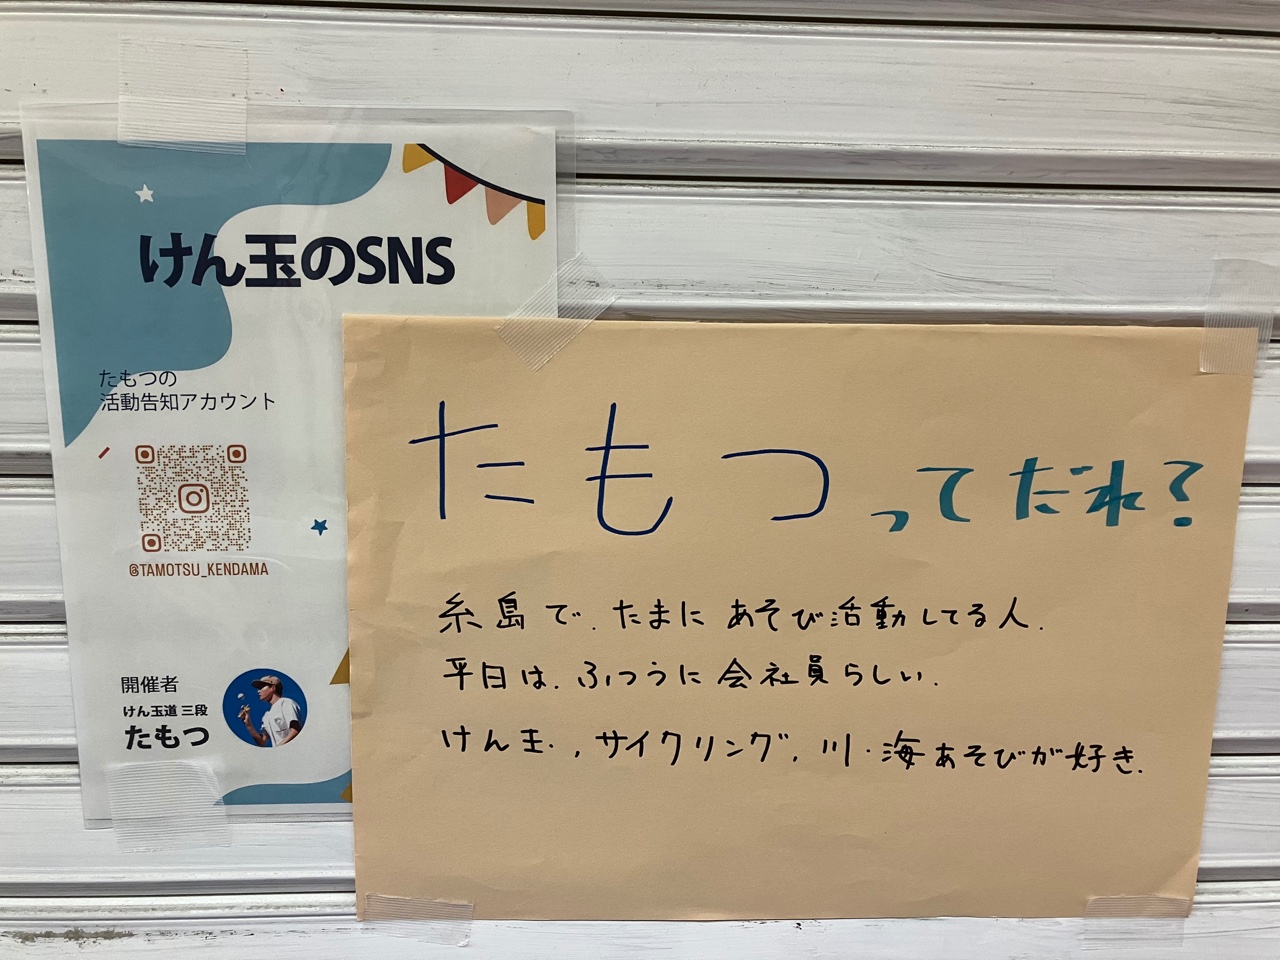 けん玉のSNS
たもつの
活動告知アカウント
@TAMOTSU_KENDAMA
開催者
けん玉道 三段
たもつ
たもつってだれ？
糸島で、たまに あそび活動してる人.
平日は、ふつうに会社員らしい.
けん玉、サイクリング、川・海あそびが好き.